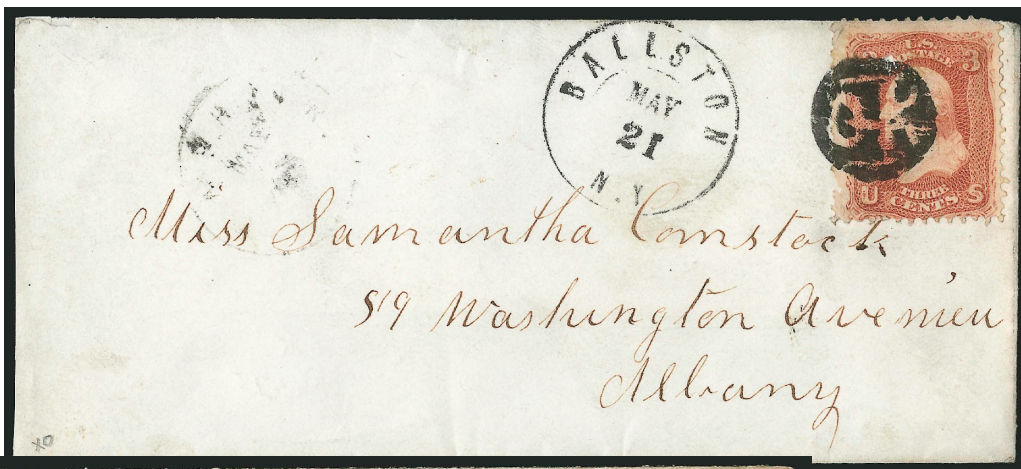 BALLSTON
MAY
21
N.Y.
U.S. POSTAGE
3
U THREE CENTS S
Miss Samantha Comstock
59 Washington Avenieu
Albany
XO